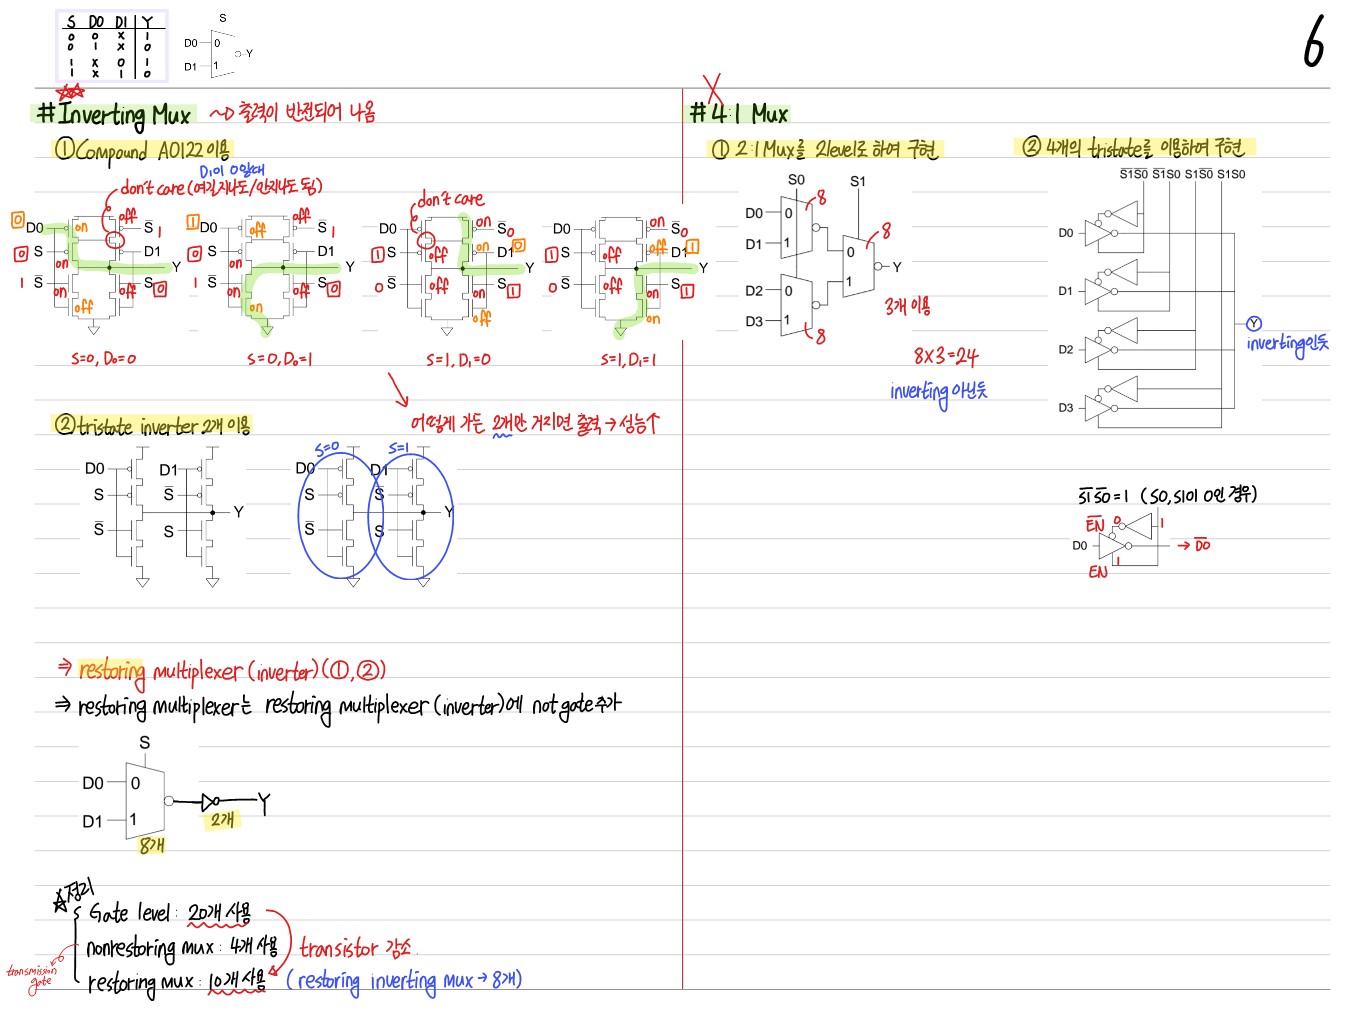 6
S D0 D1 Y
0 0 X 1
0 1 X 0
1 X 0 1
1 X 1 0
S
D0 0
Y
D1 1
# Inverting Mux ~> 출력이 반전되어 나옴
① Compound AOI22 이용
D1이 0일때
don't care (여길지나도/안지나도 됨)
don't care
0 D0 on off S̅ 1
0 S D1
on Y
1 S̅ on off S 0
off
S=0, D0=0
1 D0 off off S̅ 1
0 S D1
on Y
1 S̅ on off S 0
on
S=0, D0=1
D0 on S̅ 0
1 S off on D1 0
Y
0 S̅ off on S 1
off
S=1, D1=0
D0 on S̅ 0
1 S off off D1 1
Y
0 S̅ off on S 1
on
S=1, D1=1
어떻게 가든 2개만 거치면 출력 → 성능↑
② tristate inverter 2개 이용
D0 D1
S S̅
Y
S̅ S
S=0 S=1
D0 D1
S S̅
Y
S̅ S
⇒ restoring multiplexer (inverter) (①, ②)
⇒ restoring multiplexer는 restoring multiplexer (inverter)에 not gate 추가
S
D0 0
Y
D1 1
2개
8개
☆정리
Gate level : 20개 사용
nonrestoring mux : 4개 사용
transistor 감소.
transmission gate
restoring mux : 10개 사용 (restoring inverting mux → 8개)
X
# 4:1 Mux
① 2:1 Mux를 2level로 하여 구현
S0 S1
8
D0 0
8
D1 1
0
Y
1
D2 0
D3 1
8
3개 이용
8X3=24
inverting 아닌듯
② 4개의 tristate를 이용하여 구현
S̅1̅S̅0̅ S̅1̅S0 S1S̅0̅ S1S0
D0
D1
D2
D3
Y
inverting인듯
S̅1̅ S̅0̅=1 (S0, S1이 0인 경우)
E̅N̅ 0 1
D0 → D̅0̅
EN 1